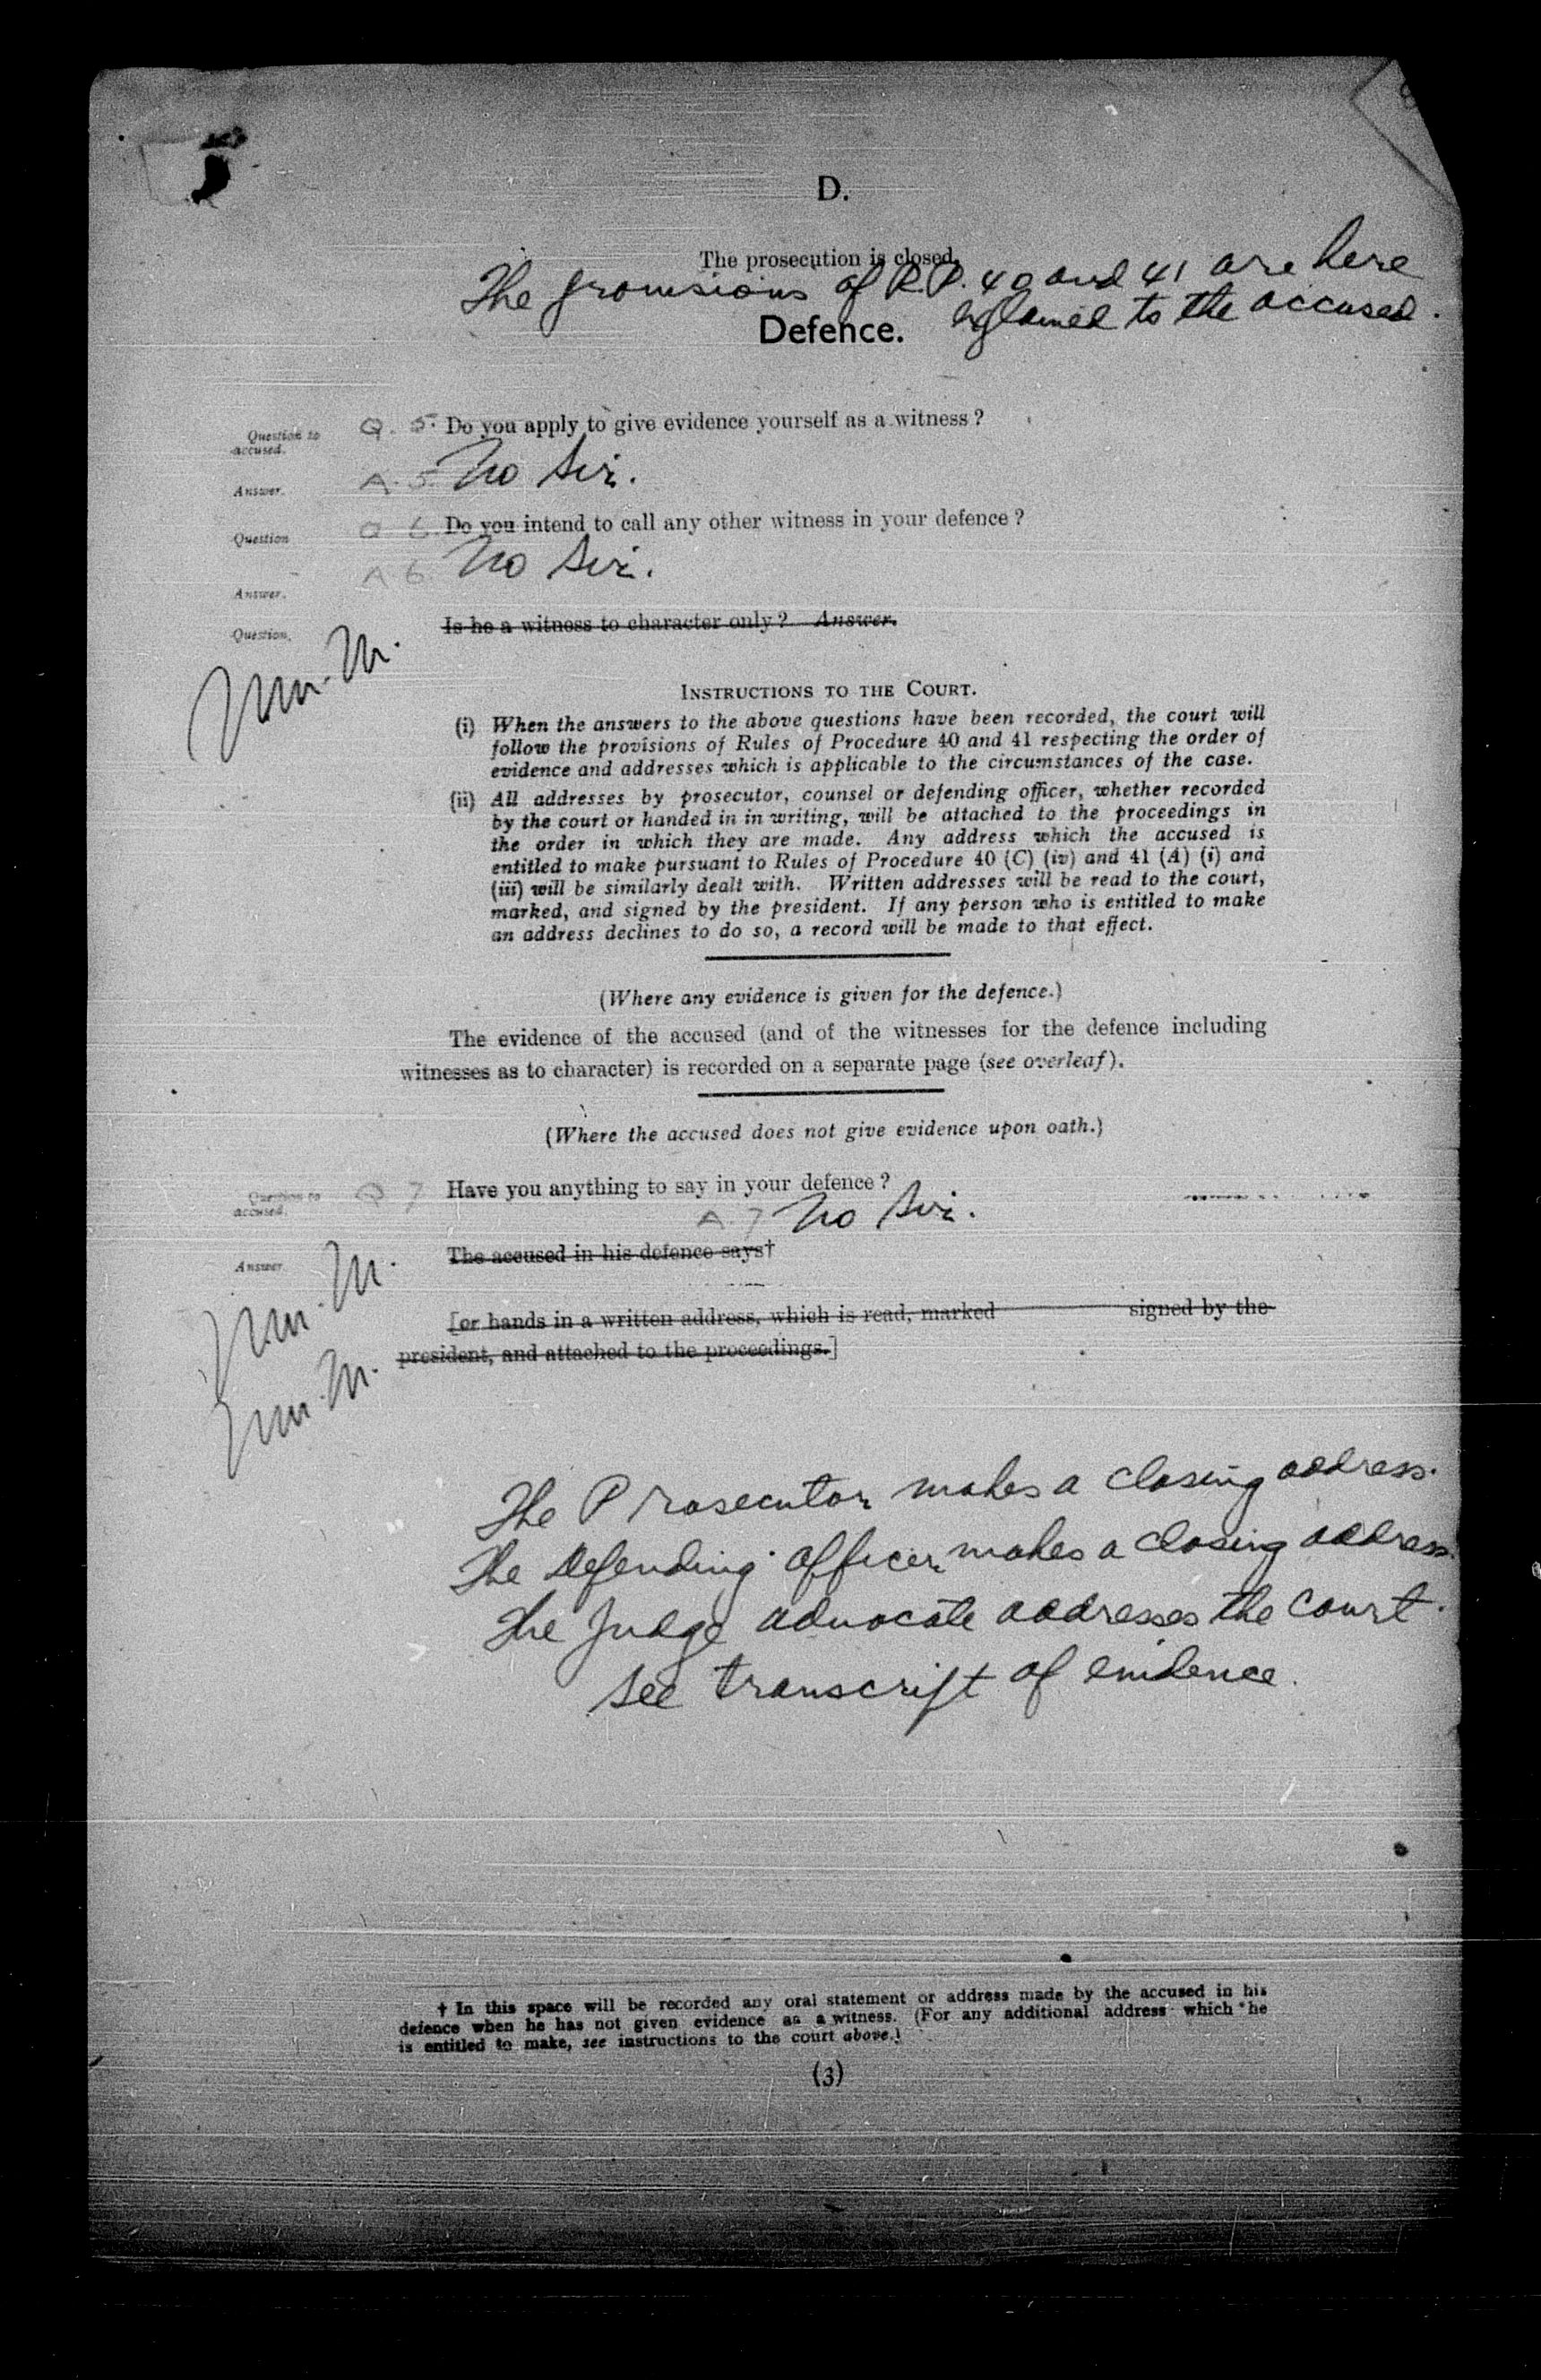 D.
The prosecution is closed.
The provisions of R.P. 40 and 41 are here
explained to the accused.
Defence.
Question to accused. Q. 5. Do you apply to give evidence yourself as a witness?
Answer. A. 5. No Sir.
Question Q 6. Do you intend to call any other witness in your defence?
Answer. A 6. No Sir.
Question. Is he a witness to character only? Answer.
INSTRUCTIONS TO THE COURT.
(i) When the answers to the above questions have been recorded, the court will
follow the provisions of Rules of Procedure 40 and 41 respecting the order of
evidence and addresses which is applicable to the circumstances of the case.
(ii) All addresses by prosecutor, counsel or defending officer, whether recorded
by the court or handed in in writing, will be attached to the proceedings in
the order in which they are made. Any address which the accused is
entitled to make pursuant to Rules of Procedure 40 (C) (iv) and 41 (A) (i) and
(iii) will be similarly dealt with. Written addresses will be read to the court,
marked, and signed by the president. If any person who is entitled to make
an address declines to do so, a record will be made to that effect.
(Where any evidence is given for the defence.)
The evidence of the accused (and of the witnesses for the defence including
witnesses as to character) is recorded on a separate page (see overleaf).
(Where the accused does not give evidence upon oath.)
Question to accused. Q 7 Have you anything to say in your defence?
A. 7 No Sir.
Answer The accused in his defence says†
[or hands in a written address, which is read, marked signed by the
president, and attached to the proceedings.]
The Prosecutor makes a closing address.
The Defending officer makes a closing address.
The Judge advocate addresses the court.
See transcript of evidence.
† In this space will be recorded any oral statement or address made by the accused in his
defence when he has not given evidence as a witness. (For any additional address which he
is entitled to make, see instructions to the court above.)
(3)